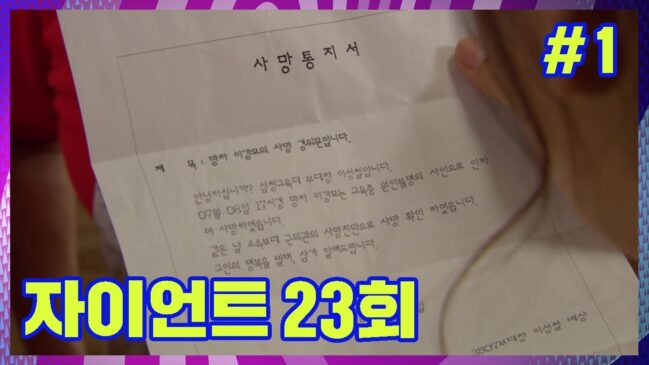 #1
사망통지서
제 목 : 망자 이강모의 사망 경위문입니다.
안녕하십니까? 삼청교육대 부대장 이성철입니다.
07월 08일 17시경 망자 이강모는 교육중 원인불명의 사인으로 인하
여 사망하였습니다.
같은 날 소속부대 군의관의 사망진단으로 사망 확인 하였습니다.
고인의 명복을 빌며, 삼가 알려드립니다.
부대장 이성철 배상
자이언트 23회